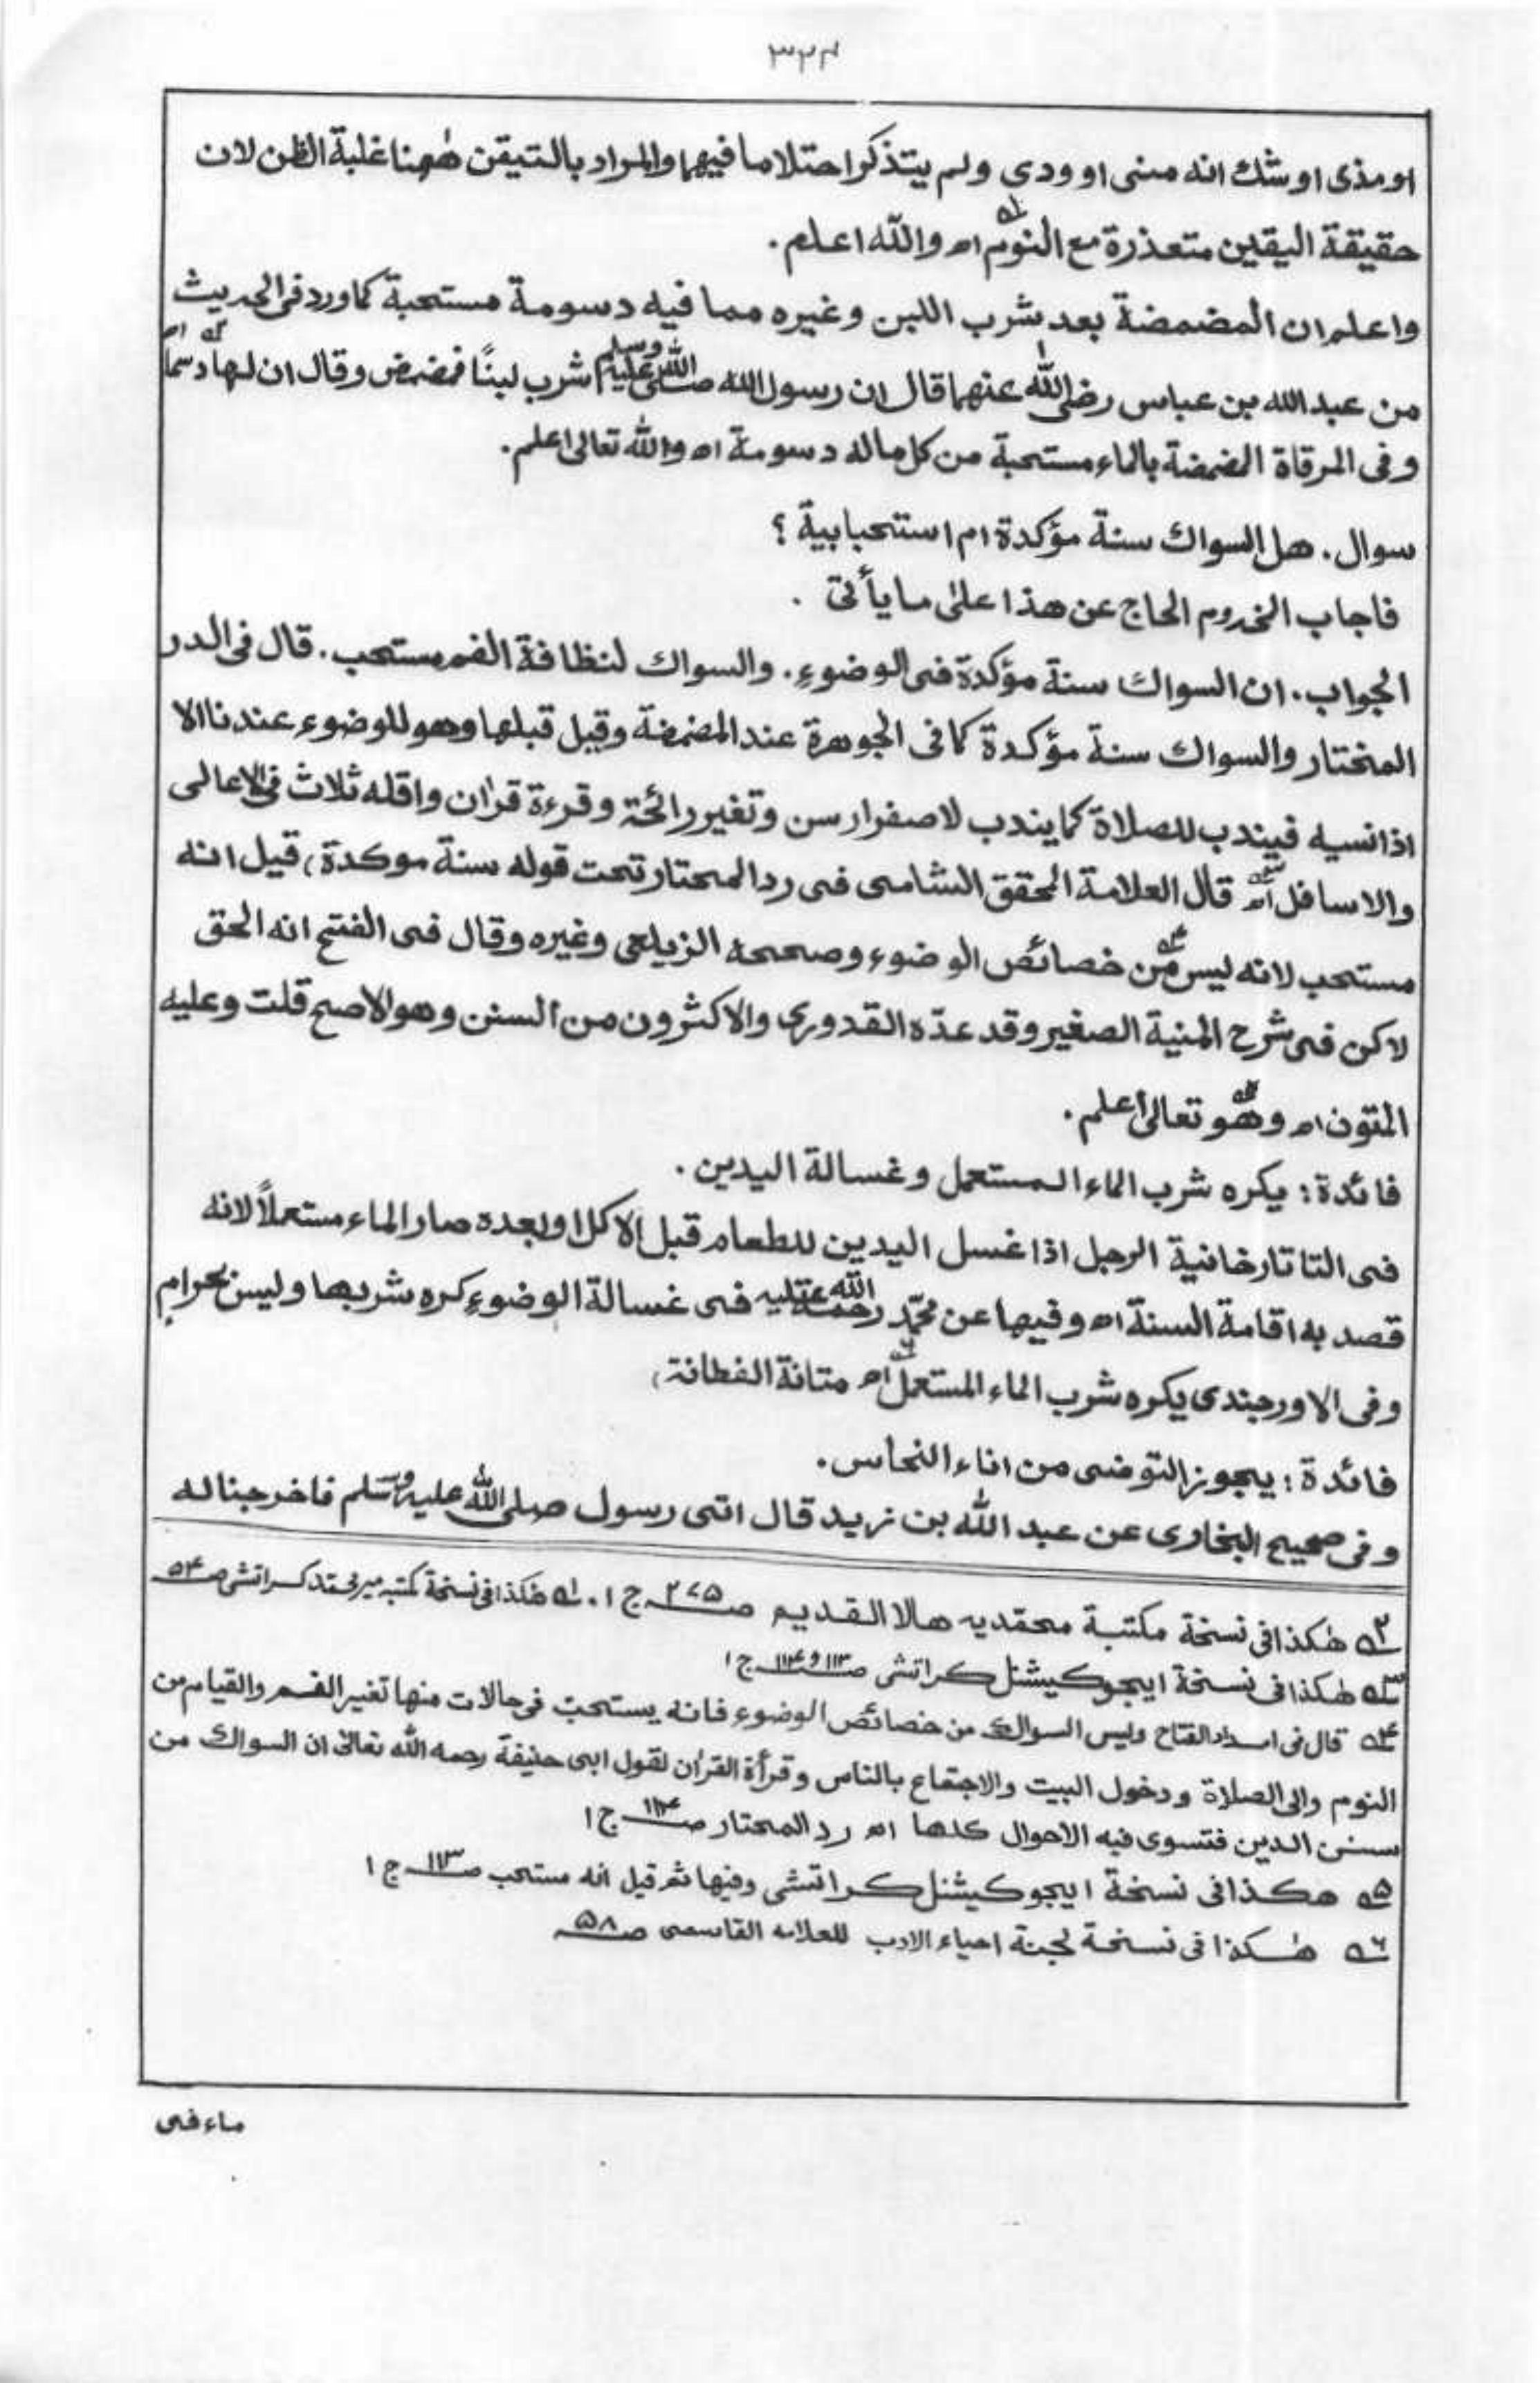 ٣٢٤
او مذى او شك انه منى او ودى ولم يتذكر احتلاما فيهما والمراد بالتيقن هٰهنا غلبة الظن لان
حقيقة اليقين متعذرة مع النوم اھ ؂١ والله اعلم.
واعلم ان المضمضة بعد شرب اللبن وغيره مما فيه دسومة مستحبة كما ورد فى الحديث
من عبد الله بن عباس رضى الله عنهما قال ان رسول الله صلى الله عليه وسلم شرب لبنًا فمضمض وقال ان لها دسمًا اھ ؂٢
وفى المرقاة المضمضة بالماء مستحبة من كل ماله دسومة اھ والله تعالى اعلم.
سوال. هل السواك سنة مؤكدة ام استحبابية ؟
فاجاب المخدوم الحاج عن هذا على ما يأتى .
الجواب. ان السواك سنة مؤكدة فى الوضوءِ. والسواك لنظافة الفم مستحب. قال فى الدر
المختار والسواك سنة مؤكدة كما فى الجوهرة عند المضمضة وقيل قبلها وهو للوضوء عندنا الا
اذا نسيه فيندب للصلاة كما يندب لاصفرار سن وتغير رائحة وقرءة قرٰان واقله ثلاث فى الاعالى
والاسافل اھ ؂٣ قال العلامة المحقق الشامى فى رد المحتار تحت قوله سنة موكدة، قيل انه
مستحب لانه ليس من ؂٤ خصائص الوضوء وصححه الزيلعى وغيره وقال فى الفتح انه الحق
لاكن فى شرح المنية الصغير وقد عدّه القدورى والاكثرون من السنن وهو الاصح قلت وعليه
المتون اھ ؂٥ وهو تعالىٰ اعلم.
فائدة: يكره شرب الماء المستعمل وغسالة اليدين.
فى التاتارخانية الرجل اذا غسل اليدين للطعام قبل الاكل او بعده صار الماء مستعملاً لانه
قصد به اقامة السنة اھ وفيها عن محمّد رحمة الله عليه فى غسالة الوضوءِ كره شربها وليس بحرامٍ
وفى الاورجندى يكره شرب الماء المستعمل اھ ؂٦ متانة الفطانة،
فائدة: يجوز التوضى من اناء النحاس.
وفى صحيح البخارى عن عبد الله بن زيد قال اتى رسول صلى الله عليه وسلم فاخرجنا له
؂٢ هٰكذا فى نسخة مكتبة محمديه هالا القديم ص ٢٧٥ ج ١. ؂١ هٰكذا فى نسخة كتبه مير محمد كراتشى ص ٥٤
؂٣ هٰكذا فى نسخة ايجوكيشنل كراتشى ص ١١٣ و ١١٤ ج ١
؂٤ قال فى امداد الفتاح وليس السواك من خصائص الوضوء فانه يستحب فى حالات منها تغير الفم والقيام من
النوم والى الصلاة ودخول البيت والاجتماع بالناس وقرأة القرٰان لقول ابى حنيفة رحمه الله تعالىٰ ان السواك من
سنن الدين فتسوى فيه الاحوال كلها اھ رد المحتار ص ١١٤ ج ١
؂٥ هكذا فى نسخة ايجوكيشنل كراتشى وفيها ثم قيل انه مستحب ص ١١٣ ج ١
؂٦ هٰكذا فى نسخة لجنة احياء الادب للعلامه القاسمى ص ٥٨
ماء فى